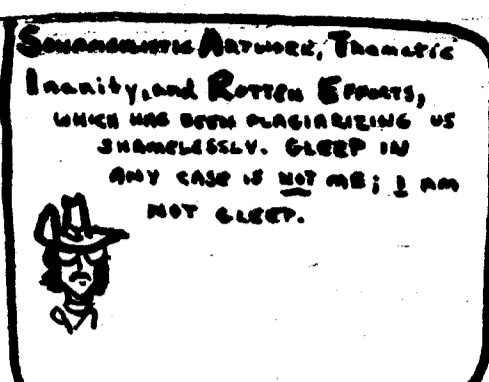 Somnambulistic Artwork, Thematic
Inanity, and Rotten Efforts,
WHICH HAS BEEN PLAGIARIZING US
SHAMELESSLY. GLEEP IN
ANY CASE IS NOT ME; I AM
NOT GLEEP.